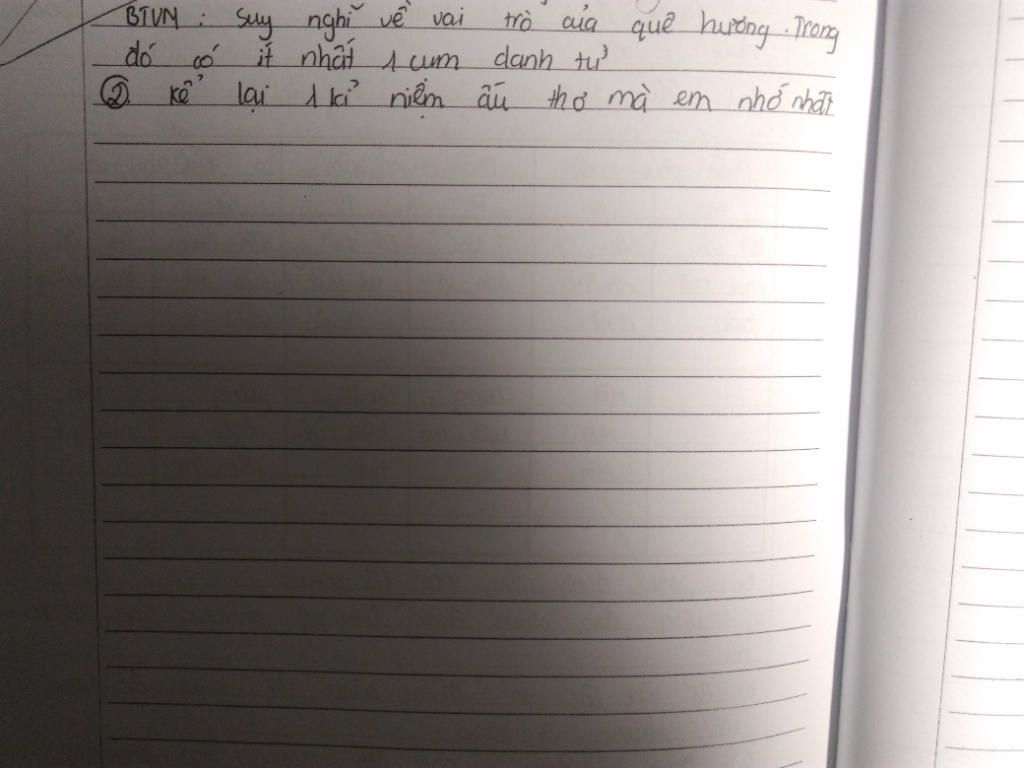 BTVN : Suy nghĩ về vai trò của quê hương. Trong
đó có ít nhất 1 cum danh từ
②. kể lại 1 kỉ niệm ấu thơ mà em nhớ nhất